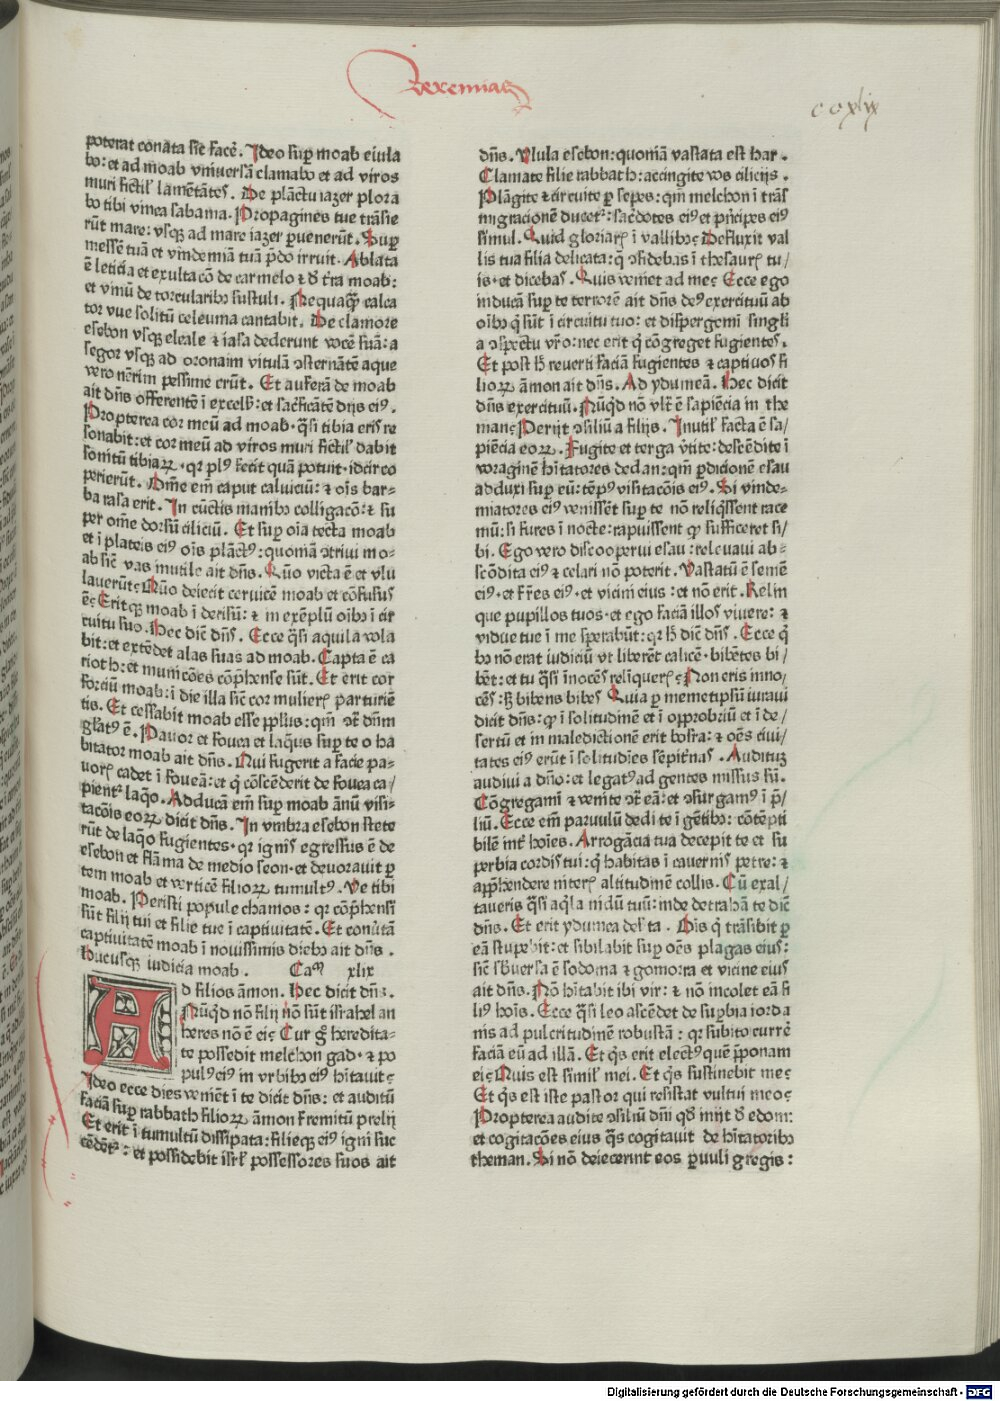 Jeremias
ccxlix
poterat conāta sīt facē. Ideo sup moab eiula
bo: et ad moab vniuersā clamabo et ad viros
muri fictil' lamētātes. De plāctu iazer plora
bo tibi vinea sabama. Propagines tue trāsie
rūt mare: vsq; ad mare iazer puenerūt. Sup
messē tuā et vindemiā tuā pdo irruit. Ablata
ē leticia et exultacō de carmelo ⁊ d' tr̄a moab:
et vinū de torcularibꝫ sustuli. Nequaq̄ȝ calca
tor vue solitū celeuma cantabit. De clamore
esebon vsq; eleale ⁊ iasa dederunt vocē suā: a
segor vsq; ad oronaim vitulā ꝯsternātē aque
vero nērim pessime erūt. Et auferā de moab
ait dn̄s offerentē ī excels': et sac̄ficātē dijs eiꝰ.
Propterea cor meū ad moab · q̄si tibia eris re
sonabit: et cor meū ad viros muri fictil' dabit
sonitū tibiaꝝ · qꝛ plꝰ fecit quā potuit · idcirco
perierūt. Om̄e em̄ caput caluiciū: ⁊ oīs bar-
ba rasa erit. In cūctis manibꝫ colligacō: ⁊ su
per om̄e dorsū ciliciū. Et sup oīa tecta moab
et ī plateis eiꝰ oīs plāctꝰ: quoniā ꝯtriui mo-
ab sic̄ vas inutile ait dn̄s. Quō victa ē et vlu
lauerūt; Quō deiecit ceruicē moab et cōfusus
ē; Eritq; moab ī derisū: ⁊ in exēplū oībꝫ ī cir
cuitu suo. Hec dic̄ dn̄s. Ecce q̄si aquila vola
bit: et extēdet alas suas ad moab. Capta ē ca
rioth: et municōes cōp̄hense sūt. Et erit cor
forciū moab: ī die illa sic̄ cor mulier' parturiē
tis. Et cessabit moab esse pplus: qm̄ ꝯt̄ dn̄m
gl'atꝰ ē. Pauor et fouea et laq̄us sup te o ha
bitator moab ait dn̄s. Qui fugerit a facie pa-
uor' cadet ī foueā: et q̄ cōscēderit de fouea ca/
pient' laq̄o. Adducā em̄ sup moab ānū visi-
tacōis eoꝝ dicit dn̄s. In vmbra esebon stete
rūt de laq̄o fugientes · qꝛ ignis egressus ē de
esebon et flāma de medio seon · et deuorauit p
tem moab et verticē filioꝝ tumultꝰ. Ve tibi
moab. Peristi popule chamos: qꝛ cōp̄hensi
sūt filij tui et filie tue ī captiuitatē. Et conūtā
captiuitatē moab ī nouissimis diebꝫ ait dn̄s.
Hucusq; iudicia moab. Cam xlix
Ad filios āmon. Hec dicit dn̄s.
Nūq̄d nō filij nō sūt israhel an
heres nō ē ei; Cur g̊ heredita-
te possedit melchon gad · ⁊ po
pulꝰ eiꝰ in vrbibꝫ eiꝰ hītauit;
Ideo ecce dies veniēt ī te dicit dn̄s: et auditū
faciā sup rabbath filioꝝ āmon fremitū prelij
Et erit ī tumultū dissipata: filieq; eiꝰ igni suc
cēdēt': et possidebit isr̄l' possessores suos ait
dn̄s. Vlula esebon: quoniā vastata est har.
Clamate filie rabbath: accingite vos cilicijs.
Plāgite ⁊ circuite p sepes: qm̄ melchon ī trās
migracionē ducet': sac̄dotes eiꝰ et pn̄cipes eiꝰ
simul. Quid gloriar' ī vallibꝫ; Defluxit val
lis tua filia delicata: q̄ ꝯfidebas ī thesaur' tu/
is · et dicebas. Quis veniet ad me; Ecce ego
inducā sup te terrorē ait dn̄s deꝰ exercituū ab
oībꝫ q̄ sūt ī circuitu tuo: et dispergemī singl'i
a ꝯspectu vr̄o: nec erit q̄ cōgreget fugientes.
Et post h' reuerti faciā fugientes ⁊ captiuos fi
lioꝝ āmon ait dn̄s. Ad ydumeā. Hec dicit
dn̄s exercituū. Nūq̄d nō vlt̄ ē sapiēcia in the
man; Perijt ꝯsiliū a filijs. Inutil' facta ē sa/
piēcia eoꝝ. Fugite et terga v̄tite: descēdite ī
voraginē hītatores dedan: qm̄ pdicionē esau
adduxi sup eū: tēpꝰ visitacōis eiꝰ. Si vinde-
miatores eiꝰ venissēt sup te nō reliq̄ssent race
mū: si fures ī nocte: rapuissent qꝫ sufficeret si/
bi. Ego vero discooperui esau: releuaui ab-
scōdita eiꝰ ⁊ celari nō poterit. Vastatū ē semē
eiꝰ · et fr̄es eiꝰ · et vicini eius: et nō erit. Relin
que pupillos tuos · et ego faciā illos viuere: ⁊
vidue tue ī me sperabūt: qꝛ h' dic̄ dn̄s. Ecce q̄
bꝫ nō erat iudiciū vt liberēt calicē · bibētes bi/
bēt: et tu q̄si īnocēs relīquer'; Non eris inno-
cēs: sꝫ bibens bibes. Quia p memetipsū iuraui
dicit dn̄s: qꝫ ī solitudinē et ī opprobriū et ī de/
sertū et in maledictionē erit bosra: ⁊ oēs ciui/
tates eiꝰ erūt ī solitudīes sēpit̄nas. Auditum
audiui a dn̄o: et legatꝰ ad gentes missus sū.
Cōgregamī ⁊ venite ꝯt̄ eā: et ꝯsurgamꝰ ī p̄/
liū. Ecce em̄ paruulū dedi te ī gētibꝫ: cōtēpti
bilē int' hoīes. Arrogācia tua decepit te et su
perbia cordis tui: q̄ habitas ī cauernis petre: ⁊
app̄hendere niter' altitudinē collis. Cū exal/
taueris q̄si aq̄la nidū tuū: inde detrahā te dic̄
dn̄s. Et erit ydumea des'ta. Oīs q̄ trāsibit p
eā stupebit: et sibilabit sup oēs plagas eius:
sic̄ sb'uersa ē sodoma ⁊ gomorra et vicine eius
ait dn̄s. Nō hītabit ibi vir: ⁊ nō incolet eā fi
liꝰ hoīs. Ecce q̄si leo ascēdet de supbia iorda
nis ad pulcritudinē robustā: qꝛ subito currē
faciā eū ad illā. Et q̄s erit electꝰ quē p̄ponam
ei; Quis est simil' mei. Et q̄s sustinebit me;
Et q̄s est iste pastor qui resistat vultui meo;
Propterea audite ꝯsiliū dn̄i qd' inijt d' edom:
et cogitacōes eius q̄s cogitauit de hītatoribꝫ
theman. Si nō deiecerint eos puuli gregis:
Digitalisierung gefördert durch die Deutsche Forschungsgemeinschaft - DFG